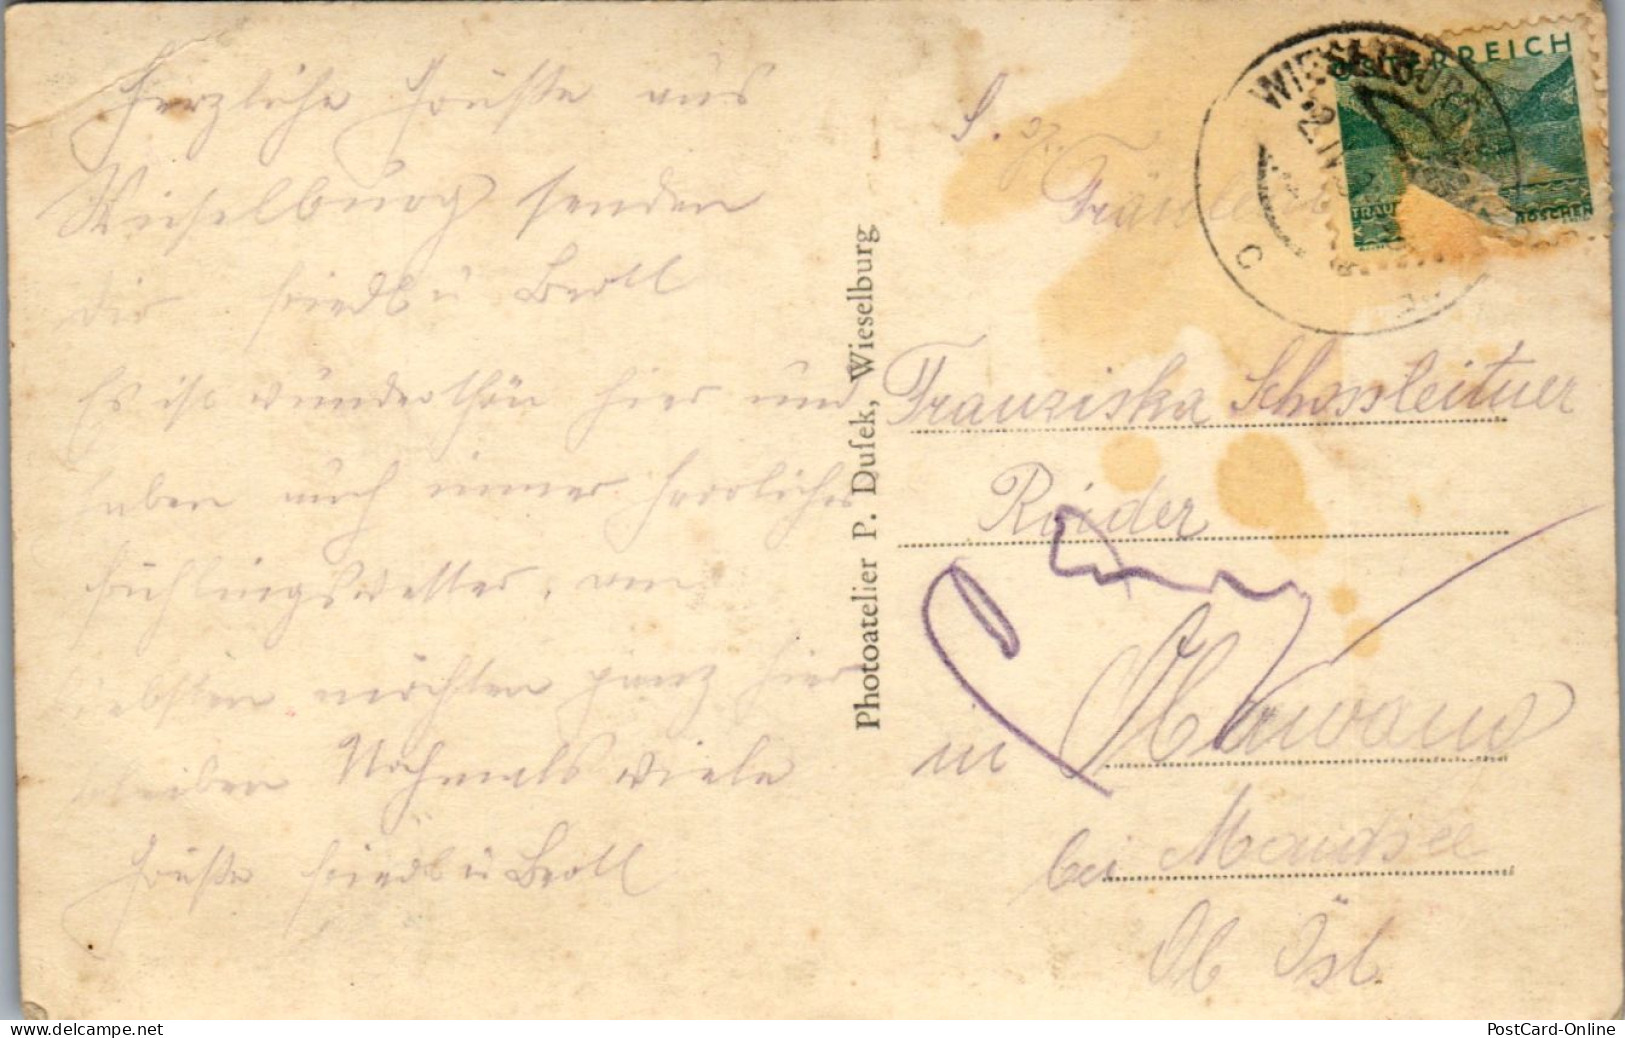 Herzliche Grüße aus
Wieselburg senden
dir Friedl u Bertl
Es ist wunderschön hier und
haben auch immer herrliches
Frühlingswetter, am
liebsten möchten ganz hier
bleiben Nochmals viele
Grüße Friedl u Bertl
Photoatelier P. Duſek, Wieselburg
WIESELBURG
ÖSTERREICH
S. g.
Fräulein
Franziska Schossleitner
in
bei Mondsee
Ob Öst.
PostCard-Online
www.delcampe.net